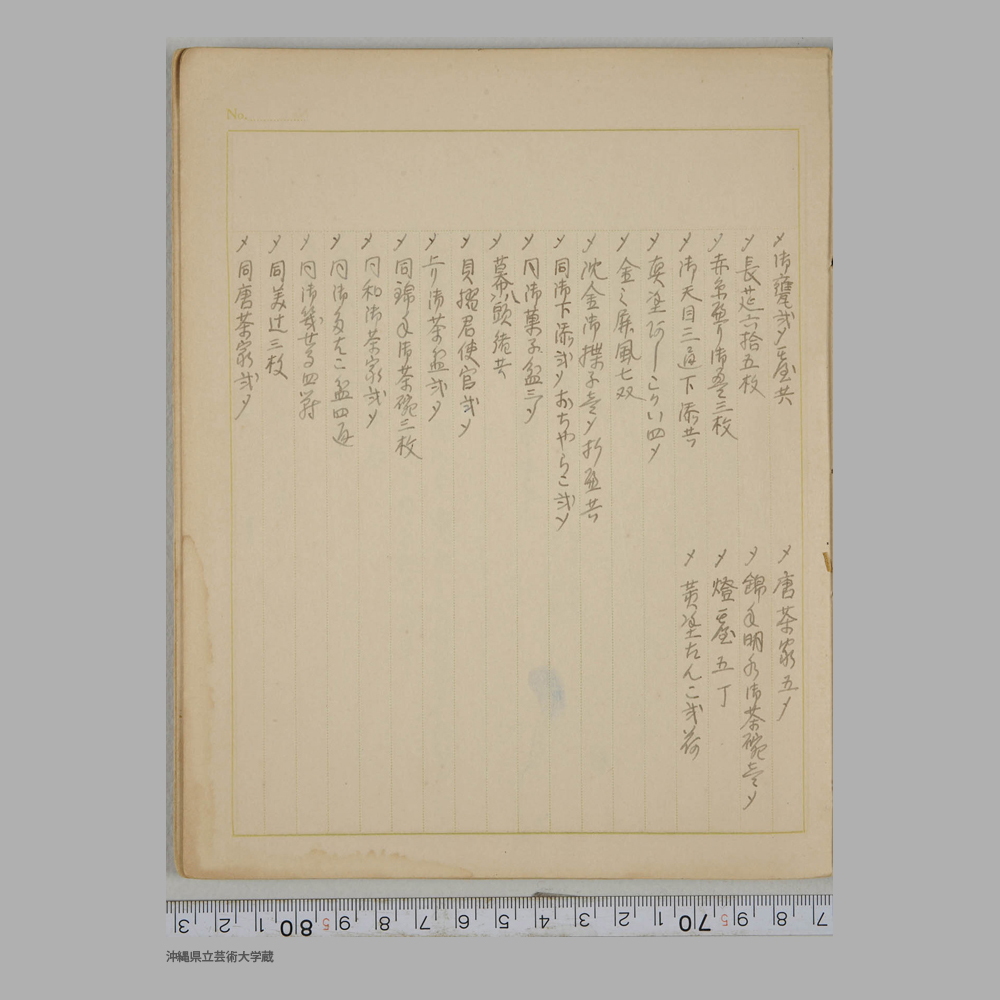 〆御甕弐〆星共
〆長莚六拾五枚
〆赤糸盛り御臺三枚
〆御天目三通下添共
〆真塗 四〆
〆金之屏風七双
〆沈金御楪子壱〆折盃共
〆同御下添弐〆おちやらこ弐〆
〆同御菓子盆三〆
〆幕八頭緒共
〆貝摺君使官弐〆
〆上り御茶盆弐〆
〆同錦手御茶碗三枚
〆同和御茶家弐〆
〆同御多たこ盆四通
〆同御 四対
〆同美辻三枚
〆同唐茶家弐〆
〆唐茶家五〆
〆錦手明 御茶碗壱〆
〆燈屋五丁
〆黄塗たんこ弐荷
No.
3 2 1 80 9 8 7 6 5 4 3 2 1 70 9 8 7
沖縄県立芸術大学蔵